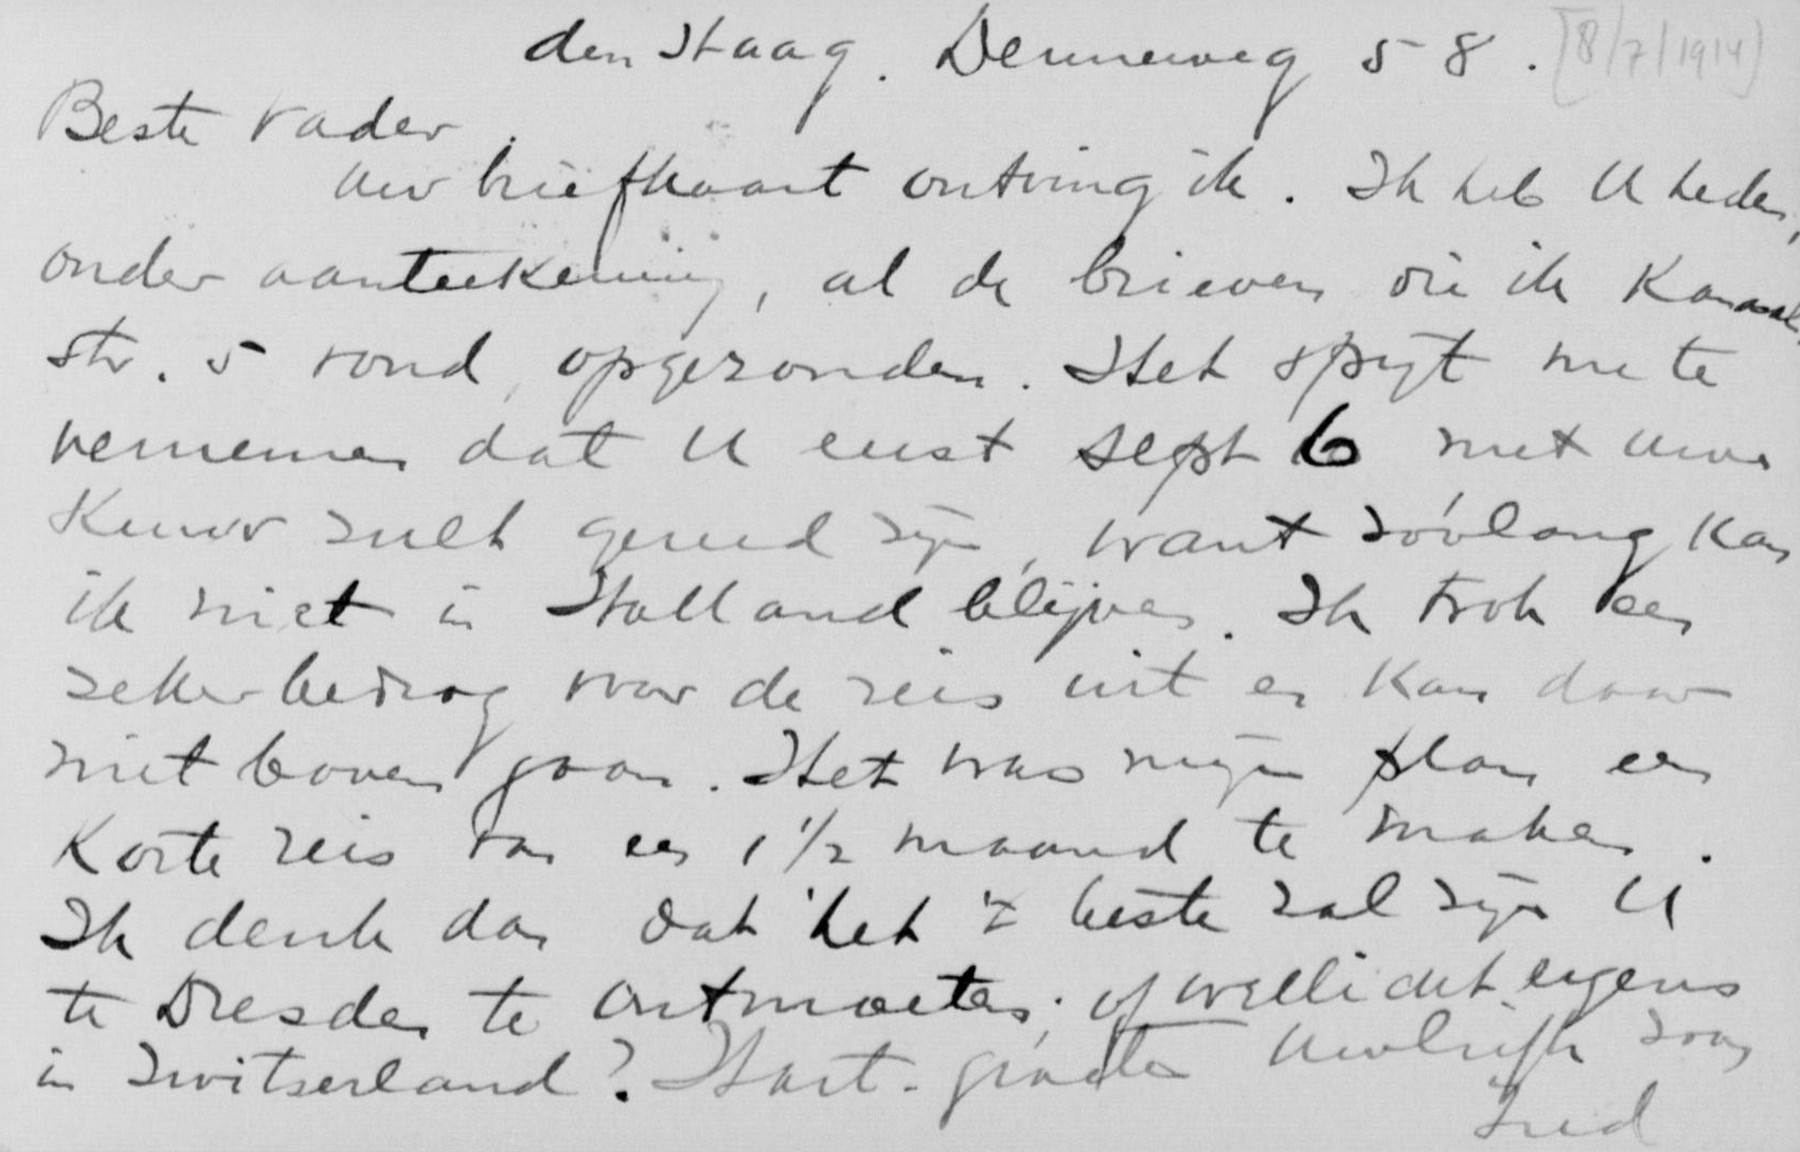 den Haag. Denneweg 58. [8/7/1914]
Beste Vader.
Uw briefkaart ontving ik. Ik heb U heden,
onder aanteekening, al de brieven die ik Kanaal
str. 5 vond, opgezonden. Het spijt me te
vernemen dat U eerst sept 6 met uwe
Kuur zult gereed zijn, want zóólang kan
ik niet in Holland blijven. Ik trok een
zeker bedrag voor de reis uit en kan daar
niet boven gaan. Het was mijn plan een
Korte reis van een 1 1/2 maand te maken.
Ik denk dan dat het 't beste zal zijn U
te Dresden te ontmoeten; of wellicht ergens
in Zwitserland? Hart. groeten Uw zoon
Fred